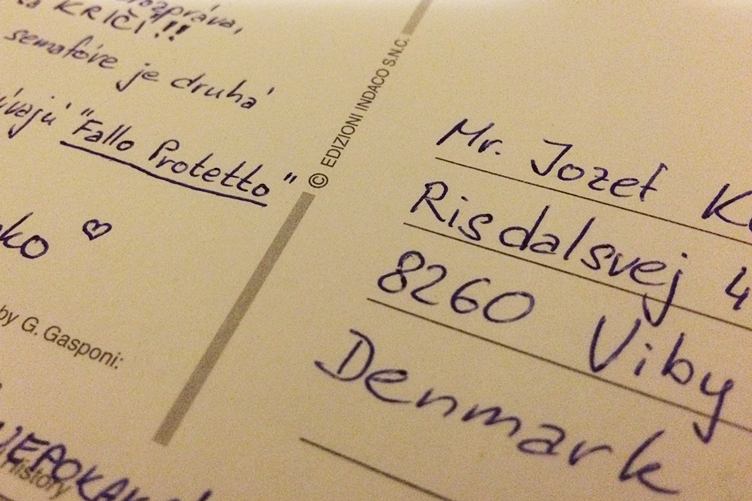 rozpráva,
KRIČÍ"!!
semafóre je druhá
"Fallo Protetto"
ko ♡
by G. Gasponi:
History
© EDIZIONI INDACO S.N.C.
Mr. Jozef K
Risdalsvej 4
8260 Viby
Denmark